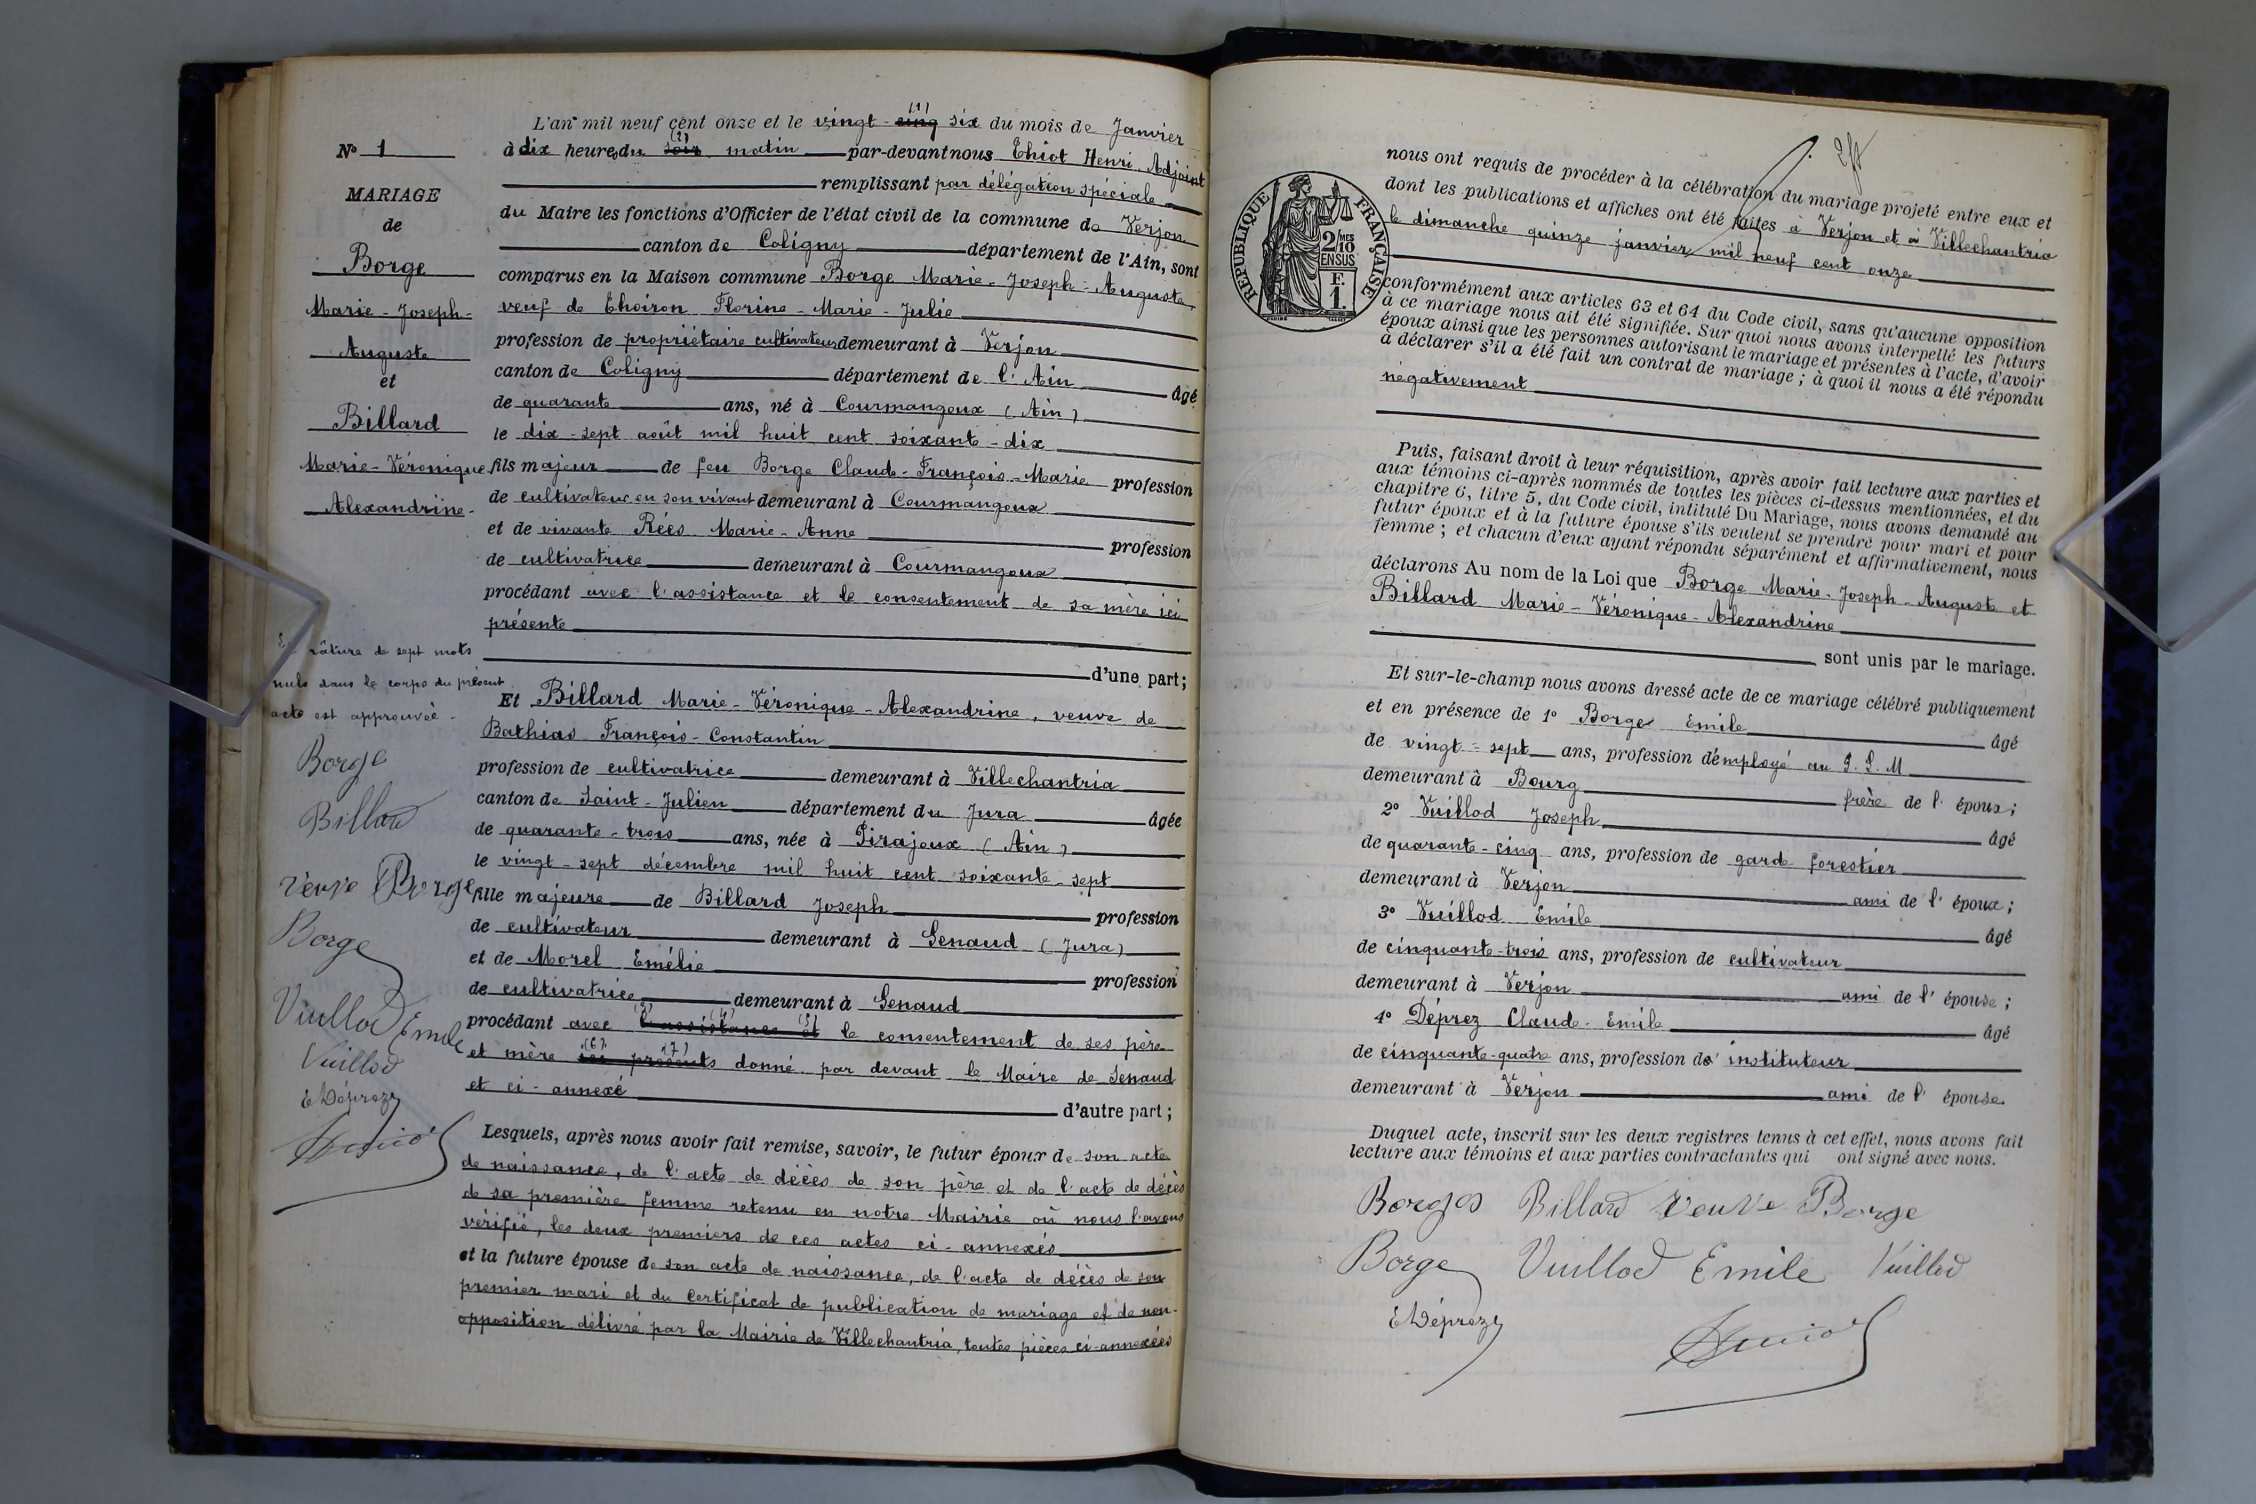 L'an mil neuf cent onze et le vingt-cinq (1) six du mois de Janvier
à dix heures du soir (2) matin par-devant nous Chiot Henri, Adjoint
remplissant par délégation spéciale
du Maire les fonctions d'Officier de l'état civil de la commune de Verjon
canton de Coligny département de l'Ain, sont
comparus en la Maison commune Borge Marie-Joseph-Auguste,
veuf de Choiron Florine-Marie-Julie
profession de propriétaire cultivateur demeurant à Verjon
canton de Coligny département de l'Ain âgé
de quarante ans, né à Courmangoux (Ain)
le dix-sept août mil huit cent soixante-dix
fils majeur de feu Borge Claude-François-Marie profession
de cultivateur en son vivant demeurant à Courmangoux
et de vivante Rées Marie-Anne profession
de cultivatrice demeurant à Courmangoux
procédant avec l'assistance et le consentement de sa mère ici
présente
d'une part;
Et Billard Marie-Véronique-Alexandrine, veuve de
Bathias François-Constantin
profession de cultivatrice demeurant à Villechantria
canton de Saint-Julien département du Jura âgée
de quarante-trois ans, née à Pirajoux (Ain)
le vingt-sept décembre mil huit cent soixante-sept
fille majeure de Billard Joseph profession
de cultivateur demeurant à Senaud (Jura)
et de Morel Emélie profession
de cultivatrice demeurant à Senaud
procédant avec (3) l'assistance (4) et (5) le consentement de ses père
et mère (6) ici (7) présents donné par devant le Maire de Senaud
et ci-annexé
d'autre part;
Lesquels, après nous avoir fait remise, savoir, le futur époux de son acte
de naissance, de l'acte de décès de son père et de l'acte de décès
de sa première femme retenu en notre Mairie où nous l'avons
vérifié, les deux premiers de ces actes ci-annexés
et la future épouse de son acte de naissance, de l'acte de décès de son
premier mari et du certificat de publication de mariage et de non-
opposition délivré par la Mairie de Villechantria, toutes pièces ci-annexées
N° 1
MARIAGE
de
Borge
Marie-Joseph-
Auguste
et
Billard
Marie-Véronique
Alexandrine.
râture de sept mots
nuls dans le corps du présent
acte est approuvée.
Borge
Billard
Veuve Borge
Borge
Vuillod Emile
Vuillod
E Déprez
nous ont requis de procéder à la célébration du mariage projeté entre eux et
dont les publications et affiches ont été faites à Verjon et à Villechantria
le dimanche quinze janvier mil neuf cent onze
conformément aux articles 63 et 64 du Code civil, sans qu'aucune opposition
à ce mariage nous ait été signifiée. Sur quoi nous avons interpellé les futurs
époux ainsi que les personnes autorisant le mariage et présentes à l'acte, d'avoir
à déclarer s'il a été fait un contrat de mariage; à quoi il nous a été répondu
négativement
RÉPUBLIQUE FRANÇAISE
2/10 MES
EN SUS
F.
1.
Puis, faisant droit à leur réquisition, après avoir fait lecture aux parties et
aux témoins ci-après nommés de toutes les pièces ci-dessus mentionnées, et du
chapitre 6, titre 5, du Code civil, intitulé Du Mariage, nous avons demandé au
futur époux et à la future épouse s'ils veulent se prendre pour mari et pour
femme; et chacun d'eux ayant répondu séparément et affirmativement, nous
déclarons Au nom de la Loi que Borge Marie-Joseph-Auguste et
Billard Marie-Véronique-Alexandrine
sont unis par le mariage.
Et sur-le-champ nous avons dressé acte de ce mariage célébré publiquement
et en présence de 1° Borge Emile âgé
de vingt-sept ans, profession d'employé au P. L. M
demeurant à Bourg frère de l'époux;
2° Vuillod Joseph âgé
de quarante-cinq ans, profession de garde forestier
demeurant à Verjon ami de l'époux;
3° Vuillod Emile âgé
de cinquante-trois ans, profession de cultivateur
demeurant à Verjon ami de l'épouse;
4° Déprez Claude-Emile âgé
de cinquante-quatre ans, profession d'instituteur
demeurant à Verjon ami de l'épouse
Duquel acte, inscrit sur les deux registres tenus à cet effet, nous avons fait
lecture aux témoins et aux parties contractantes qui ont signé avec nous.
Borge Billard Veuve Borge
Borge Vuillod Emile Vuillod
E Déprez